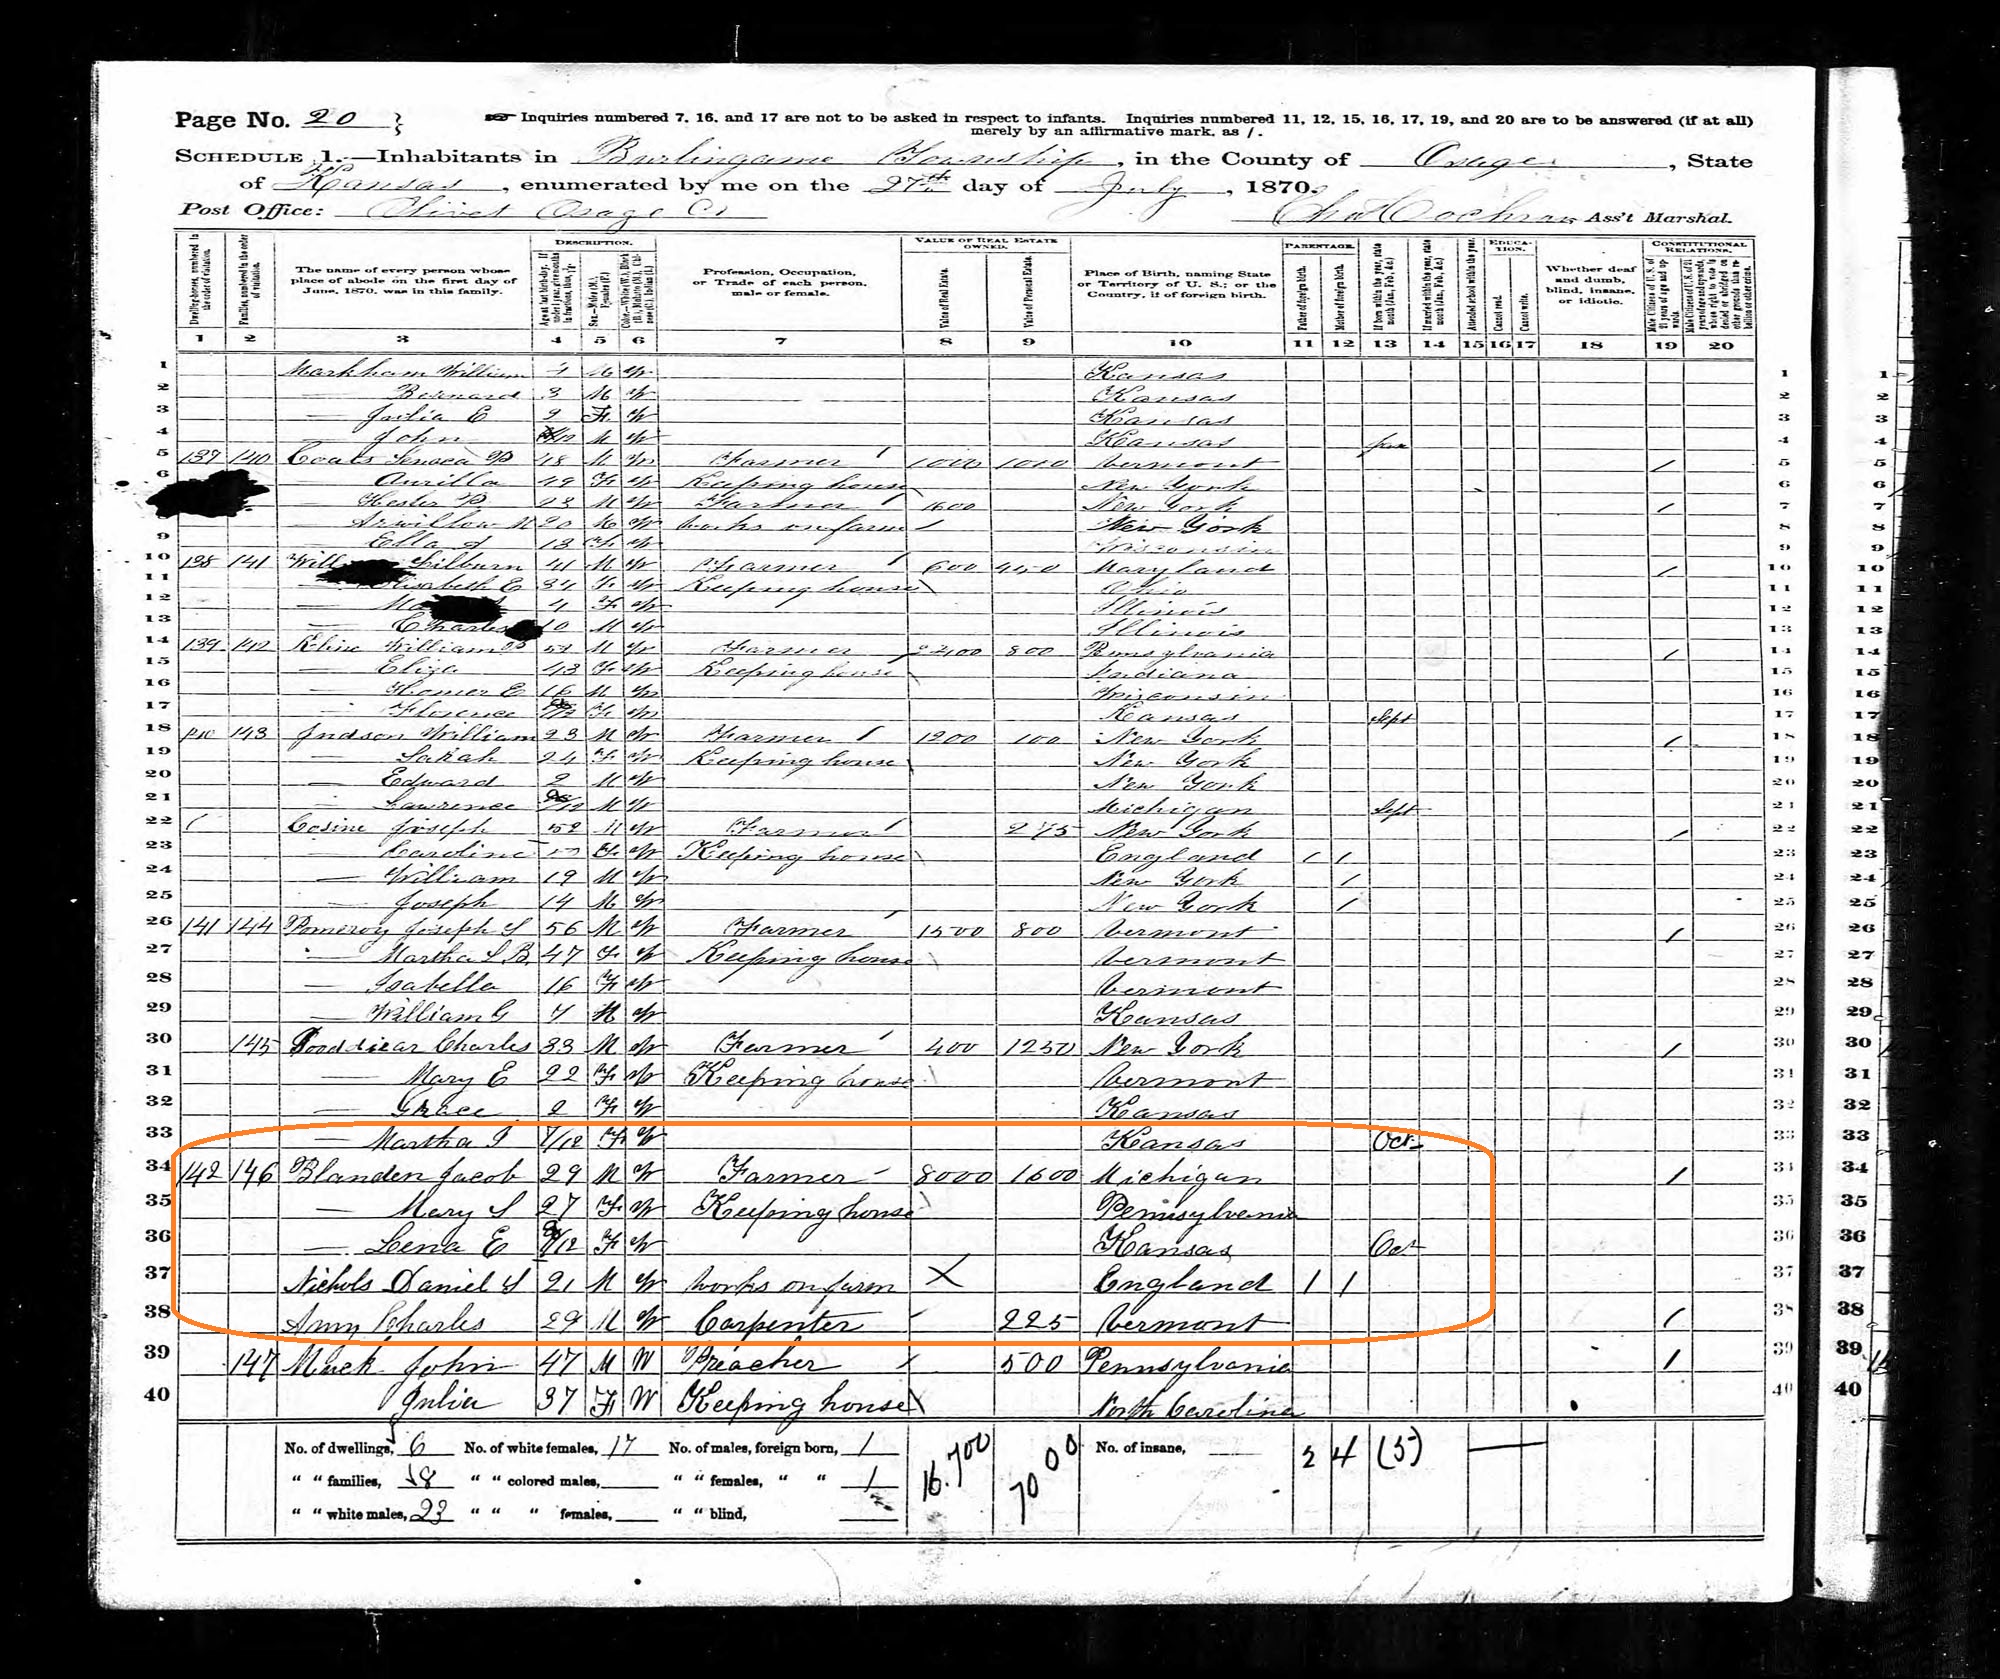 Page No. 20
Inquiries numbered 7, 16, and 17 are not to be asked in respect to infants. Inquiries numbered 11, 12, 15, 16, 17, 19, and 20 are to be answered (if at all)
merely by an affirmative mark, as /.
SCHEDULE 1.—Inhabitants in Burlingame Township, in the County of Osage, State
of Kansas, enumerated by me on the 27th day of July, 1870.
Post Office: Olivet Osage Co Chas Cochran Ass't Marshal.
DESCRIPTION. VALUE OF REAL ESTATE OWNED. PARENTAGE. EDUCATION. CONSTITUTIONAL RELATIONS.
The name of every person whose place of abode on the first day of June, 1870, was in this family. Profession, Occupation, or Trade of each person, male or female. Value of Real Estate. Value of Personal Estate. Place of Birth, naming State or Territory of U. S.; or the Country, if of foreign birth. Father of foreign birth. Mother of foreign birth. Whether deaf and dumb, blind, insane, or idiotic.
1 2 3 4 5 6 7 8 9 10 11 12 13 14 15 16 17 18 19 20
1 Markham William M W Kansas 1
2 — Bernard 3 M W Kansas 2
3 — Julia E 2 F W Kansas 3
4 — John M W Kansas Jan 4
5 137 140 Coats Seneca P 48 M W Farmer 1000 1000 Vermont / 5
6 — Aurilla 49 F W Keeping house New York 6
— Hesler 23 M W Farmer 1600 New York / 7
— 20 W works on farm New York 8
9 — Ella 13 F W Wisconsin 9
10 138 141 Will 41 M W Farmer 600 450 Maryland / 10
11 Elizabeth E 34 F W Keeping house Ohio 11
12 — F W Illinois 12
13 — Charles 10 M W Illinois 13
14 139 142 Kline William M W Farmer 2400 800 Pennsylvania / 14
15 — Eliza 43 F W Keeping house Indiana 15
16 — Homer E 16 M W Wisconsin 16
17 — Florence F W Kansas Sept 17
18 140 143 Judson William 23 M W Farmer 1200 100 New York / 18
19 — Sarah 24 F W Keeping house New York 19
20 — Edward 2 M W New York 20
21 — Lawrence M W Michigan Sept 21
22 Cosine Joseph 52 M W Farmer 275 New York / 22
23 — Caroline F W Keeping house England / / 23
24 — William 19 M W New York / 24
25 — Joseph 14 M W New York / 25
26 141 144 Pomeroy Joseph S 56 M W Farmer 1500 800 Vermont / 26
27 — Martha S B 47 F W Keeping house Vermont 27
28 — Isabella 16 F W Vermont 28
29 — William G 7 M W Kansas 29
30 145 Charles 33 M W Farmer 400 1250 New York / 30
31 — Mary E 22 F W Keeping house Vermont 31
32 — Grace 2 F W Kansas 32
33 — Martha I 7/12 F W Kansas Oct 33
34 142 146 Blanden Jacob 29 M W Farmer 8000 1600 Michigan / 34
35 — Mary S 27 F W Keeping house Pennsylvania 35
36 — Lena E 8/12 F W Kansas Oct 36
37 Nichols Daniel S 21 M W works on farm X England / / 37
38 Amy Charles 29 M W Carpenter 225 Vermont / 38
39 147 Muck John 47 M W Preacher 500 Pennsylvania / 39
40 Julia 37 F W Keeping house North Carolina 40
No. of dwellings, 6 No. of white females, 17 No. of males, foreign born, 1 16.700 7000 No. of insane, 2 4 (5)
" " families, 8 " " colored males, " " females, " " 1
" " white males, 23 " " " females, " " blind,